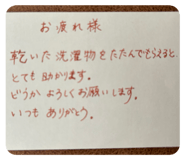 お疲れ様
乾いた洗濯物をたたんでもらえると、
とても助かります。
どうか よろしくお願いします。
いつも ありがとう。